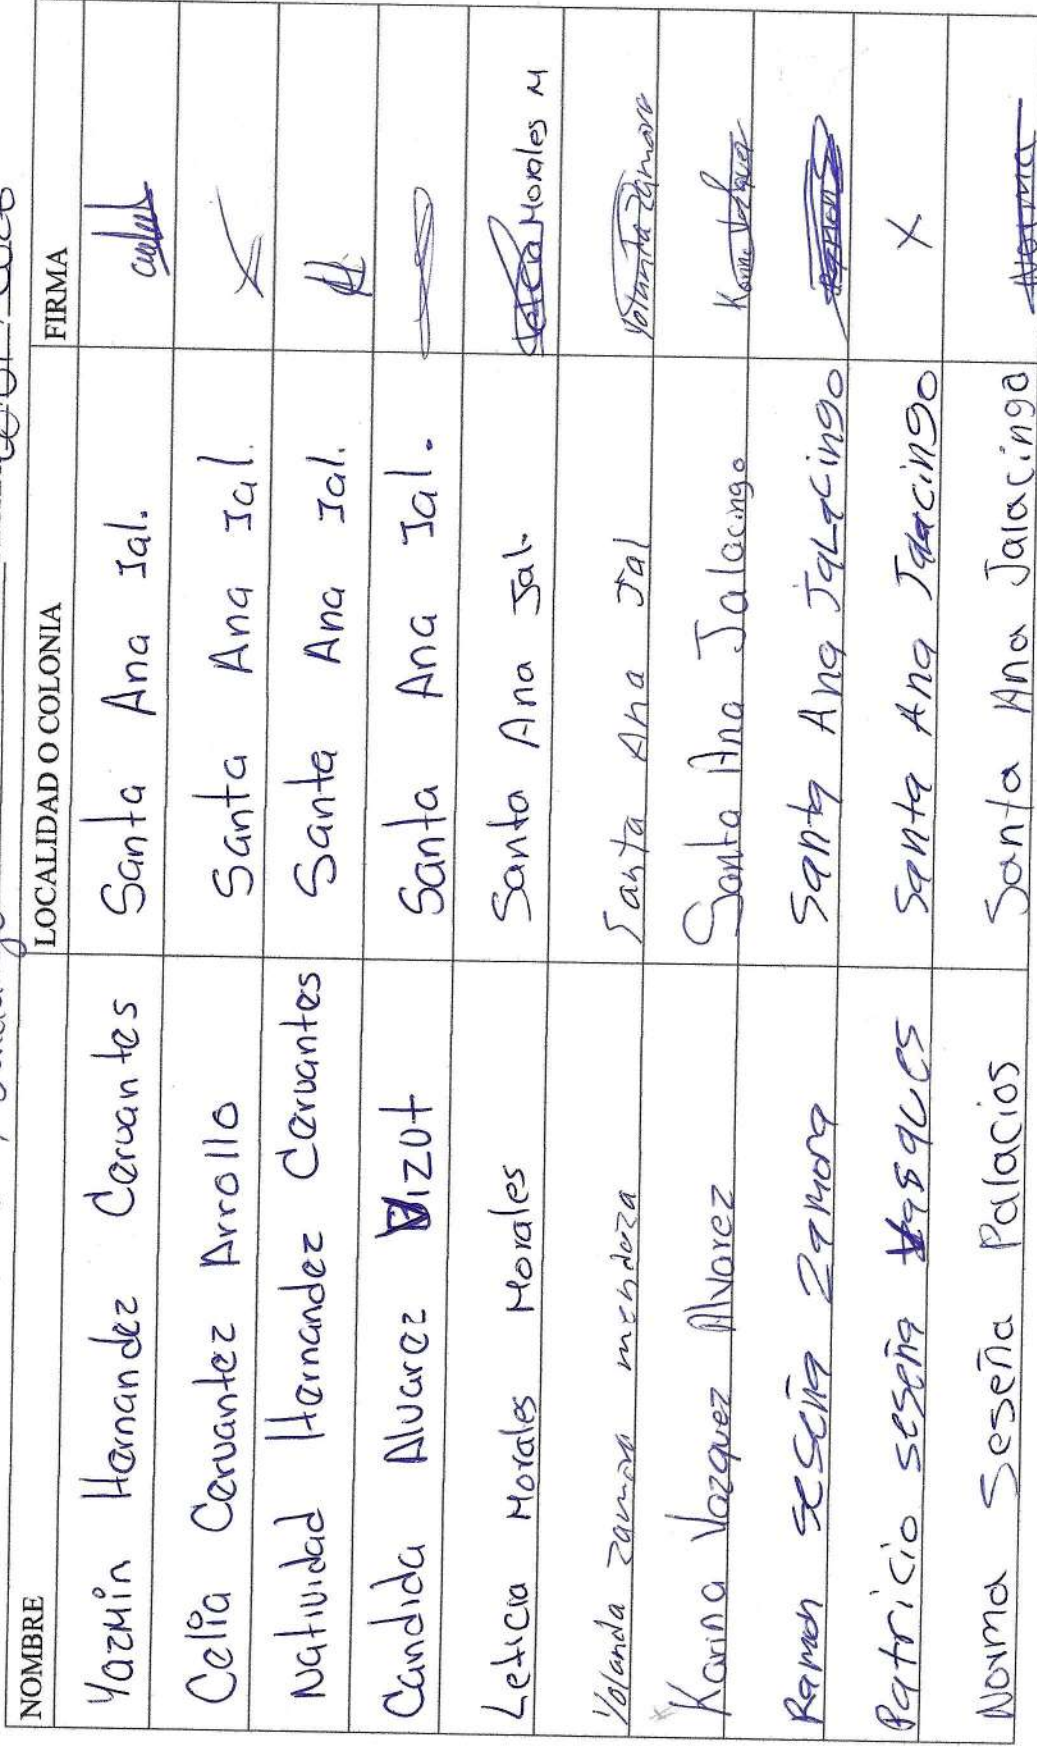 NOMBRE LOCALIDAD O COLONIA FIRMA
Yazmin Hernandez Cervantes Santa Ana Jal.
Celia Cervantez Arrollo Santa Ana Jal. X
Natividad Hernandez Cervantes Santa Ana Jal.
Candida Alvarez Vizut Santa Ana Jal.
Leticia Morales Morales Santa Ana Jal. Leticia Morales M
Yolanda Zamora mendoza Santa Ana Jal Yolanda Zamora
Karina Vazquez Alvarez Santa Ana Jalacingo Karina Vazquez
Ramon seseña Zamora Santa Ana Jalacingo
Patricio seseña Vasques Santa Ana Jalacingo X
Norma Seseña Palacios Santa Ana Jalacingo Norma